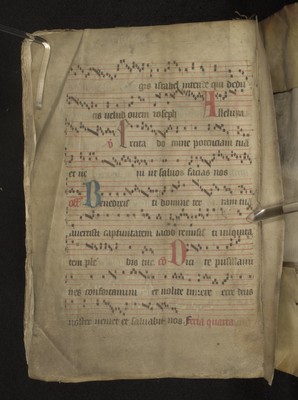 gis israhel intende qui dedu
cis velud ovem ioseph Alleluia
v Excita do mine potentiam tuā
et ve ni ut salvos facias nos
off Benedixis ti domine ter ram tuā
avertisti captivitatem iacob remisis ti iniquita
tem ple bis tue co Dici te pusillani
mes confortamini et nolite timere ecce deus
noster veniet et salvabit nos Feria quarta